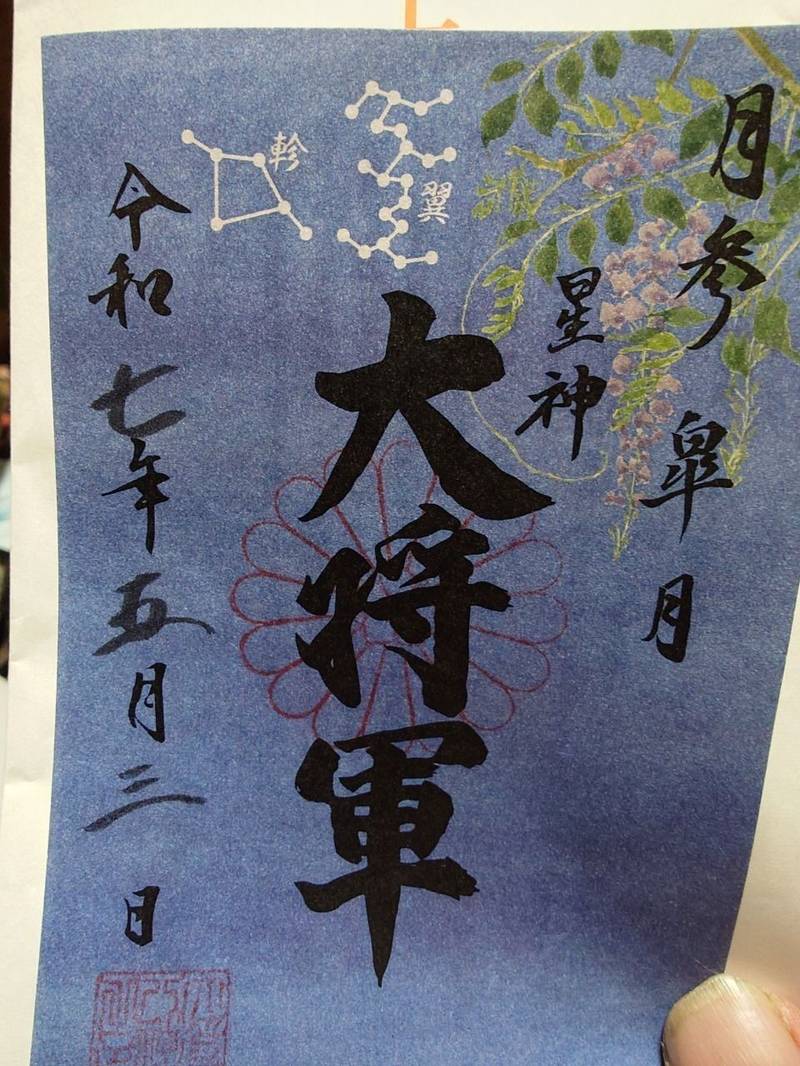 月参 皐月
星神
大将軍
翼
軫
令和七年五月三日